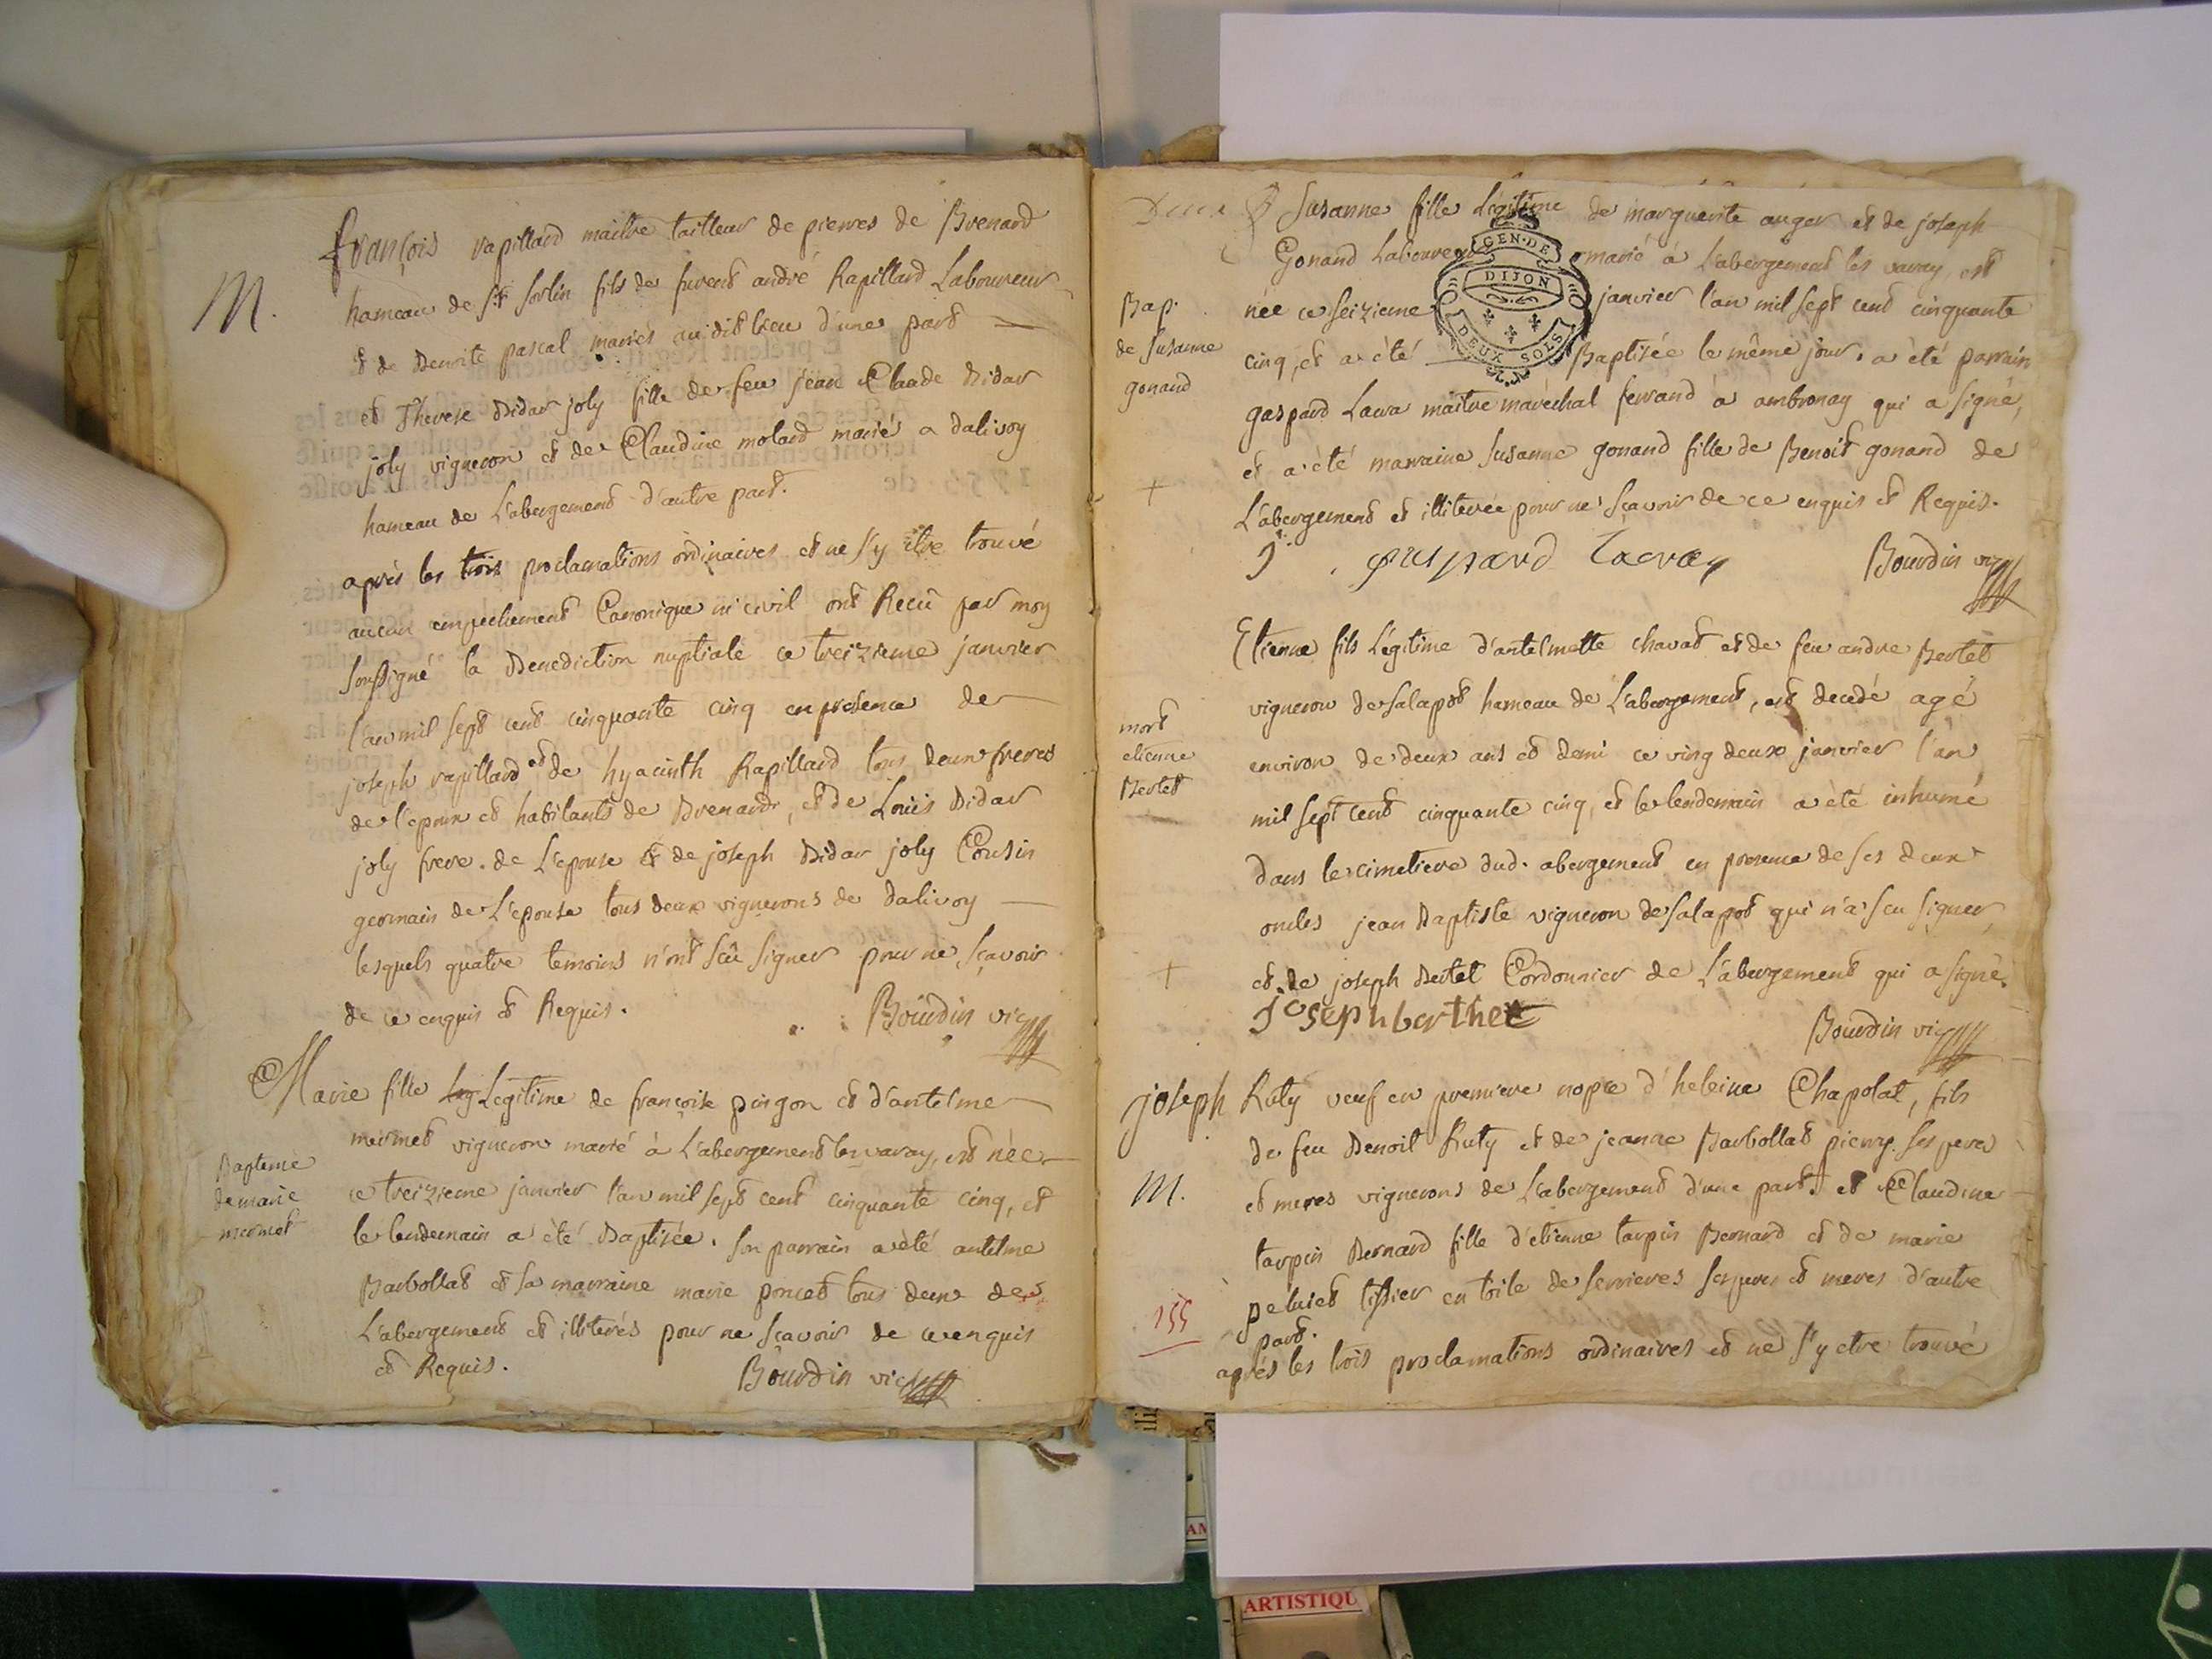 M.
françois rapillard maitre tailleur de pierres de Brenard
hameau de st sorlin fils de furent andré Rapillard Laboureur
& de Benoite pascal mariés audit lieu d'une part
et Therese Didar joly fille de feu jean Claude Didar
joly vigneron et de Claudine molard mariés a dalivoy
hameau de L'abergement d'autre part.
après les trois proclamations ordinaires et ne s'y être trouvé
aucun empechement Canonique ni civil ont Recû par moy
soussigné la Benediction nuptiale ce treizieme janvier
l'an mil sept cent cinquante cinq en presence de
joseph rapillard et de hyacinth Rapillard tous deux freres
de l'epoux et habitants de Brenard, et de Loüis Didar
joly frere de L'epouse & de joseph Didar joly Cousin
germain de L'epouse tous deux vignerons de dalivoy
lesquels quatre temoins n'ont sçû signer pour ne sçavoir
de ce enquis et Requis.
Bourdin vic
Bapteme
de marie
mermet
Marie fille leg Legitime de françoise pingon et d'antelme
mermet vigneron marié à L'abergement les varay, est née
ce treizieme janvier l'an mil sept cent cinquante cinq, et
le lendemain a èté Baptisée. son parrain a èté antelme
Barbollat et sa marraine marie poncet tous deux de
L'abergement et illiterés pour ne sçavoir de ce enquis
et Requis.
Bourdin vic
Deux
GEN·DE
DIJON
DEUX SOLS
Bap.
de susanne
gonand
Susanne fille Légitime de marguerite auger et de joseph
Gonand Laboureur marié à L'abergement les varay, est
née ce seizieme janvier l'an mil sept cent cinquante
cinq, et a èté Baptisée le même jour. a èté parrain
gaspard Lacra maitre maréchal ferrand à ambronay qui a signé,
et a èté marraine susanne gonand fille de Benoit gonand de
L'abergement et illiterée pour ne sçavoir de ce enquis et Requis.
J. gaspard Lacray
Bourdin vic
mort
etienne
Bertet
Etienne fils Légitime d'antelmette chavat et de feu andre Bertet
vigneron de salapot hameau de L'abergement, est decedé agé
environ de deux ans et demi ce ving deux janvier l'an
mil sept cent cinquante cinq, et le lendemain a èté inhumé
dans le cimetiere dud. abergement en presence de ses deux
oncles jean Baptiste vigneron de salapot qui n'a sçu signer,
et de joseph Bertet Cordonnier de L'abergement qui a signé.
joseph berthet
Bourdin vic
M.
joseph Ruty veuf en premiere nopce d'heleine Chapolat, fils
de feu Benoit Ruty et de jeanne Barbollat pierry ses peres
et meres vignerons de L'abergement d'une part. et Claudine
tarpin Bernard fille d'etienne tarpin Bernard et de marie
peluiet tissier en toile de serrieres ses peres et meres d'autre
part.
155
aprés les trois proclamations ordinaires et ne s'y etre trouvé
ARTISTIQU